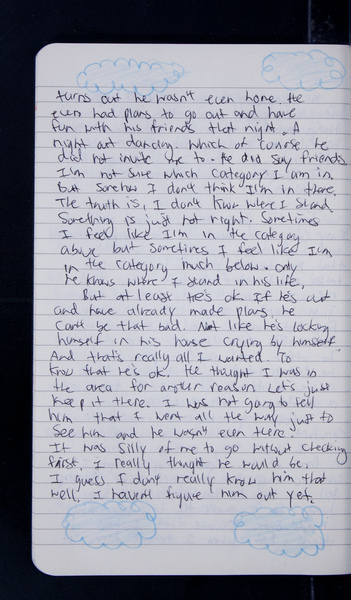 turns out he wasn't even home. He
even had plans to go out and have
fun with his friends that night. A
night out dancing. Which of course he
did not invite me to. He did say friends
I'm not sure which category I am in.
But somehow I don't think I'm in there.
The truth is, I don't know where I stand.
Something is just not right. Sometimes
I feel like I'm in the category
above but sometimes I feel like I'm
in the category much below. Only
he knows where I stand in his life.
But at least he's ok. If he's out
and have already made plans, he
can't be that bad. Not like he's locking
himself in his house crying by himself.
And that's really all I wanted. To
know that he's ok. He thought I was in
the area for another reason. Let's just
keep it there. I was not going to tell
him that I went all the way just to
see him and he wasn't even there.
It was silly of me to go without checking
first. I really thought he would be.
I guess I don't really know him that
well. I haven't figure him out yet.